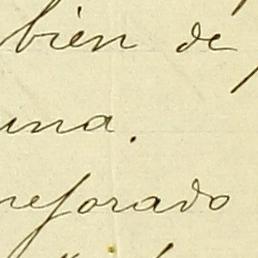 bien de
una.
nejorado